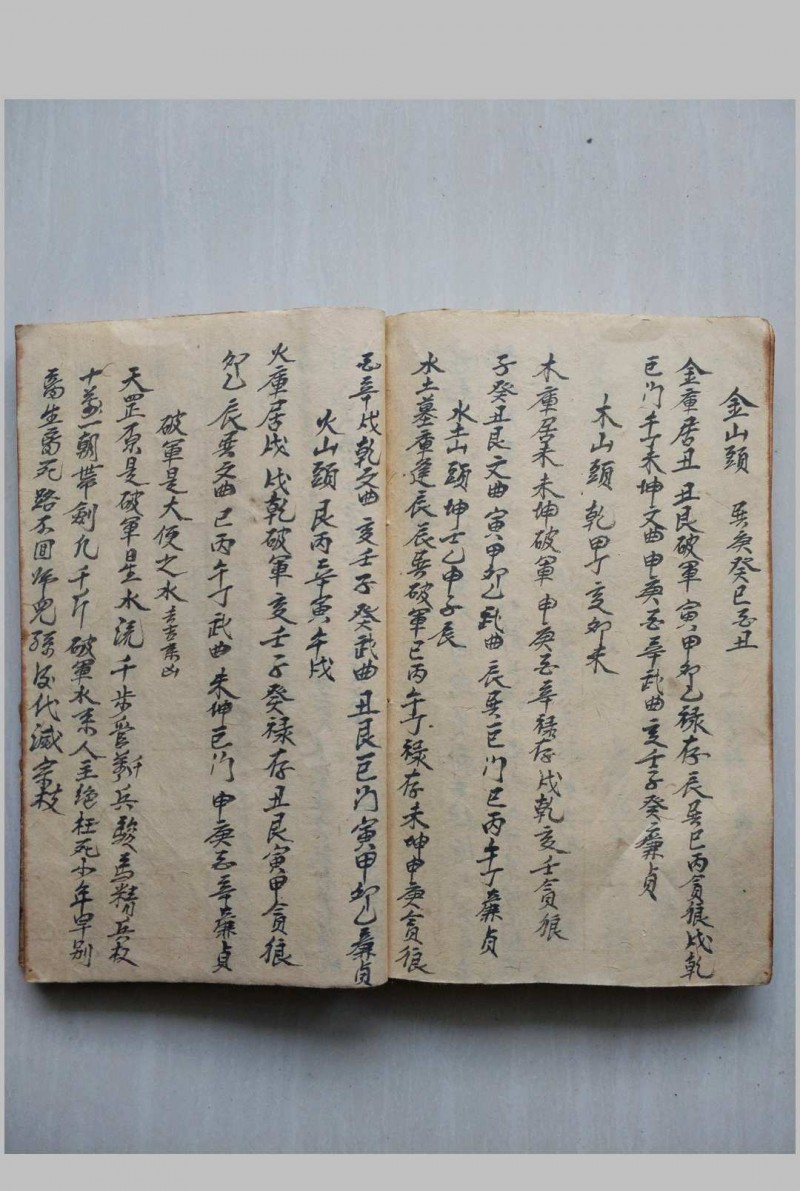 金山頭 巽庚癸巳酉丑
金庫居丑 丑艮破軍 寅甲卯乙祿存 辰巽巳丙貪狼 戌乾
巨门 午丁未坤文曲 申庚酉辛武曲 亥壬子癸廉貞
木山頭 乾甲丁亥卯未
木庫居未 未坤破軍 申庚酉辛祿存 戌乾亥壬貪狼
子癸丑艮文曲 寅甲卯乙武曲 辰巽巨门 巳丙午丁廉貞
水土山頭 坤壬乙申子辰
水土墓庫逢辰 辰巽破軍 巳丙午丁祿存 未坤申庚貪狼
酉辛戌乾文曲 亥壬子癸武曲 丑艮巨门 寅甲卯乙廉貞
火山頭 艮丙辛寅午戌
火庫居戌 戌乾破軍 亥壬子癸祿存 丑艮寅甲貪狼
卯乙辰巽文曲 巳丙午丁武曲 未坤巨门 申庚酉辛廉貞
破軍是大便之水 去吉來凶
天罡原是破軍星 水流千步管兵 駿馬精兵
十萬 一朝帶劍九千斤 破軍水來人主絕 枉死少年早别
喬生喬死路不回 兒孫後代滅宗枝